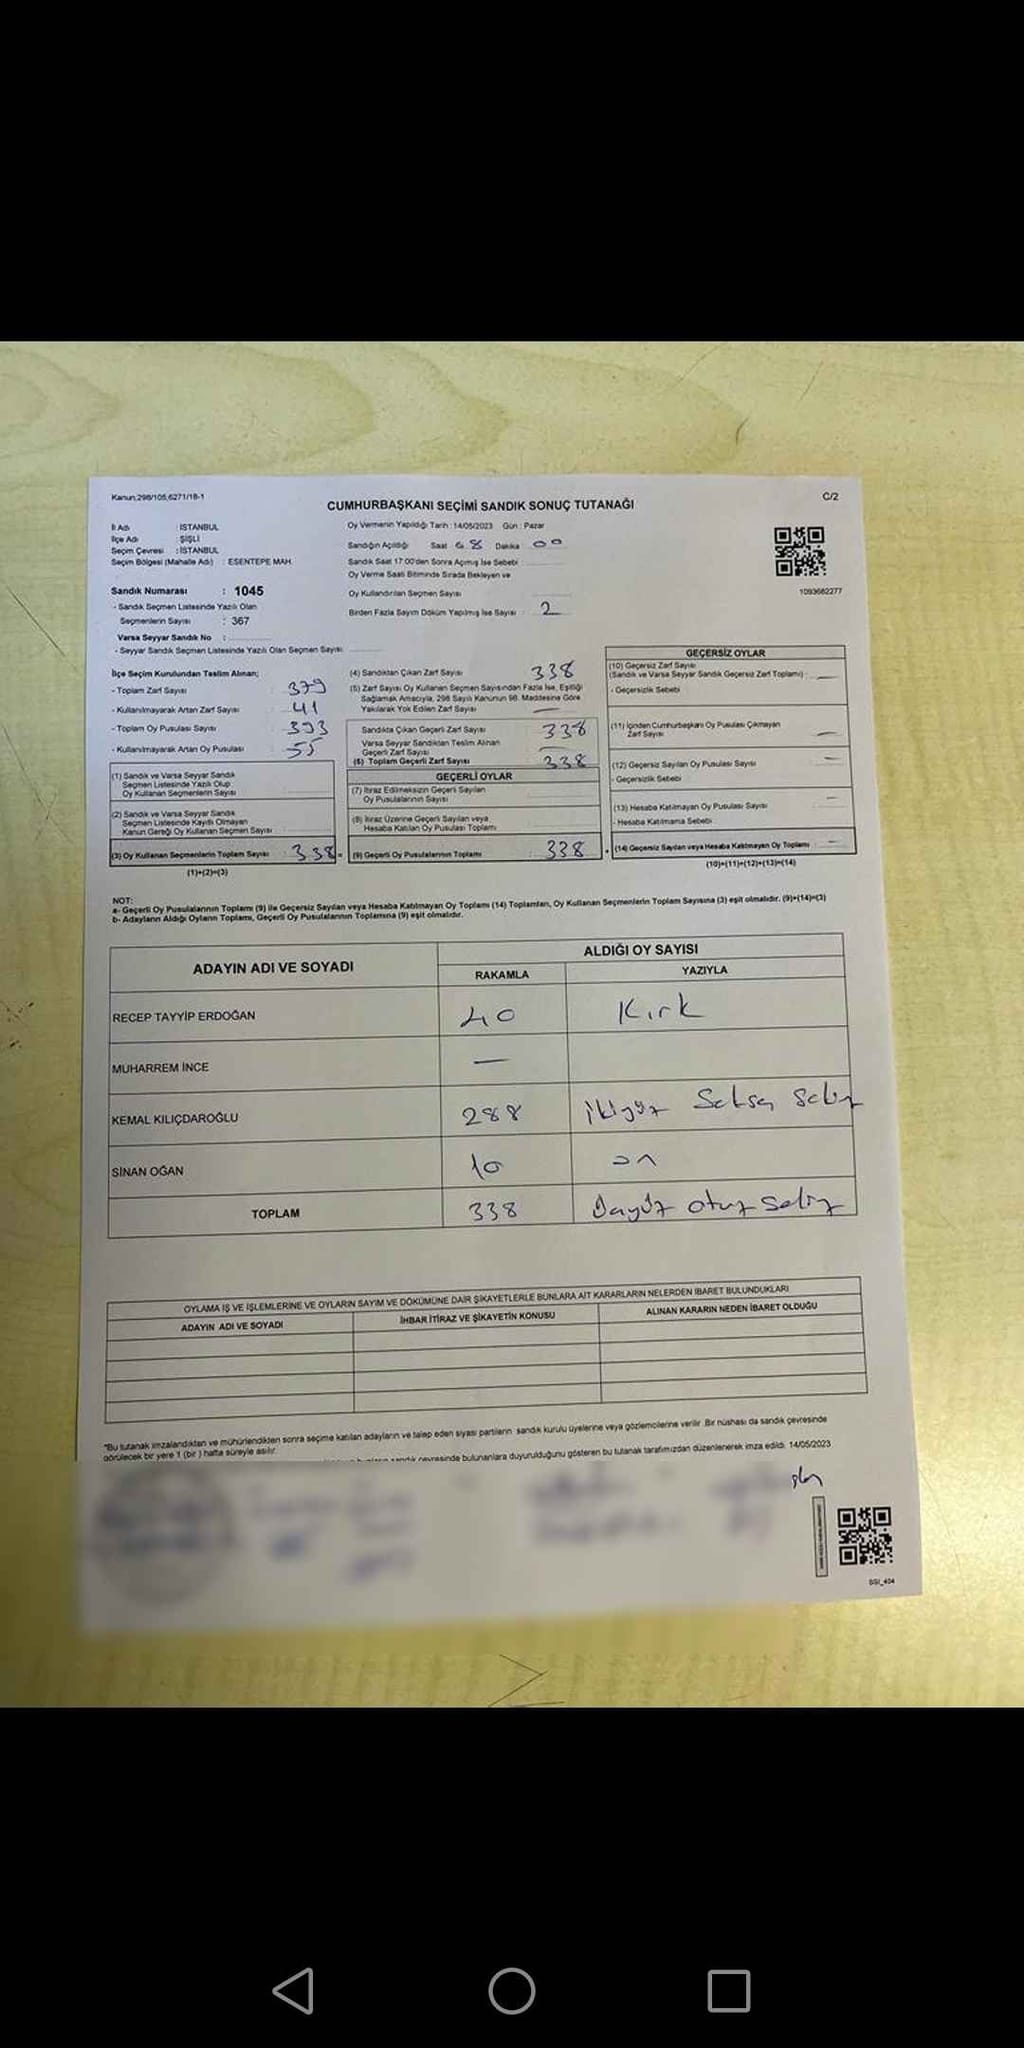 Kanun;298/105,6271/18-1
C/2
CUMHURBAŞKANI SEÇİMİ SANDIK SONUÇ TUTANAĞI
İl Adı : İSTANBUL
İlçe Adı : ŞİŞLİ
Seçim Çevresi : İSTANBUL
Seçim Bölgesi (Mahalle Adı) : ESENTEPE MAH.
Oy Vermenin Yapıldığı Tarih : 14/05/2023 Gün : Pazar
Sandığın Açıldığı Saat 08 Dakika 00
Sandık Saat 17:00'den Sonra Açmış İse Sebebi
Oy Verme Saati Bitiminde Sırada Bekleyen ve
Oy Kullandırılan Seçmen Sayısı
Birden Fazla Sayım Döküm Yapılmış İse Sayısı : 2
1093682277
Sandık Numarası : 1045
- Sandık Seçmen Listesinde Yazılı Olan
Seçmenlerin Sayısı : 367
Varsa Seyyar Sandık No :
- Seyyar Sandık Seçmen Listesinde Yazılı Olan Seçmen Sayısı:
İlçe Seçim Kurulundan Teslim Alınan;
- Toplam Zarf Sayısı : 379
- Kullanılmayarak Artan Zarf Sayısı : 41
- Toplam Oy Pusulası Sayısı : 393
- Kullanılmayarak Artan Oy Pusulası : 55
(1) Sandık ve Varsa Seyyar Sandık
Seçmen Listesinde Yazılı Olup
Oy Kullanan Seçmenlerin Sayısı
(2) Sandık ve Varsa Seyyar Sandık
Seçmen Listesinde Kayıtlı Olmayan
Kanun Gereği Oy Kullanan Seçmen Sayısı
(3) Oy Kullanan Seçmenlerin Toplam Sayısı : 338 =
(1)+(2)=(3)
(4) Sandıktan Çıkan Zarf Sayısı 338
(5) Zarf Sayısı Oy Kullanan Seçmen Sayısından Fazla İse, Eşitliği
Sağlamak Amacıyla, 298 Sayılı Kanunun 98. Maddesine Göre
Yakılarak Yok Edilen Zarf Sayısı —
Sandıkta Çıkan Geçerli Zarf Sayısı 338
Varsa Seyyar Sandıktan Teslim Alınan
Geçerli Zarf Sayısı —
(6) Toplam Geçerli Zarf Sayısı 338
GEÇERLİ OYLAR
(7) İtiraz Edilmeksizin Geçerli Sayılan
Oy Pusulalarının Sayısı
(8) İtiraz Üzerine Geçerli Sayılan veya
Hesaba Katılan Oy Pusulası Toplamı
(9) Geçerli Oy Pusulalarının Toplamı : 338 +
GEÇERSİZ OYLAR
(10) Geçersiz Zarf Sayısı
(Sandık ve Varsa Seyyar Sandık Geçersiz Zarf Toplamı) : —
- Geçersizlik Sebebi
(11) İçinden Cumhurbaşkanı Oy Pusulası Çıkmayan
Zarf Sayısı —
(12) Geçersiz Sayılan Oy Pusulası Sayısı —
- Geçersizlik Sebebi
(13) Hesaba Katılmayan Oy Pusulası Sayısı —
- Hesaba Katılmama Sebebi
(14) Geçersiz Sayılan veya Hesaba Katılmayan Oy Toplamı —
(10)+(11)+(12)+(13)=(14)
NOT:
a- Geçerli Oy Pusulalarının Toplamı (9) ile Geçersiz Sayılan veya Hesaba Katılmayan Oy Toplamı (14) Toplamları, Oy Kullanan Seçmenlerin Toplam Sayısına (3) eşit olmalıdır. (9)+(14)=(3)
b- Adayların Aldığı Oyların Toplamı, Geçerli Oy Pusulalarının Toplamına (9) eşit olmalıdır.
ADAYIN ADI VE SOYADI
ALDIĞI OY SAYISI
RAKAMLA YAZIYLA
RECEP TAYYİP ERDOĞAN 40 Kırk
MUHARREM İNCE —
KEMAL KILIÇDAROĞLU 288 ikiyüz Seksen Sekiz
SİNAN OĞAN 10 on
TOPLAM 338 Üçyüz otuz Sekiz
OYLAMA İŞ VE İŞLEMLERİNE VE OYLARIN SAYIM VE DÖKÜMÜNE DAİR ŞİKAYETLERLE BUNLARA AİT KARARLARIN NELERDEN İBARET BULUNDUKLARI
ADAYIN ADI VE SOYADI İHBAR İTİRAZ VE ŞİKAYETİN KONUSU ALINAN KARARIN NEDEN İBARET OLDUĞU
*Bu tutanak imzalandıktan ve mühürlendikten sonra seçime katılan adayların ve talep eden siyasi partilerin sandık kurulu üyelerine veya gözlemcilerine verilir. Bir nüshası da sandık çevresinde
görülecek bir yere 1 (bir) hafta süreyle asılır.
sandık çevresinde bulunanlara duyurulduğunu gösteren bu tutanak tarafımızdan düzenlenerek imza edildi. 14/05/2023
SSI_404